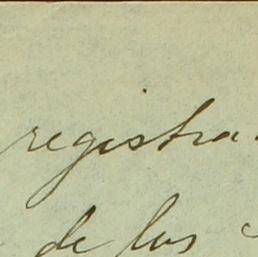 registra
de los